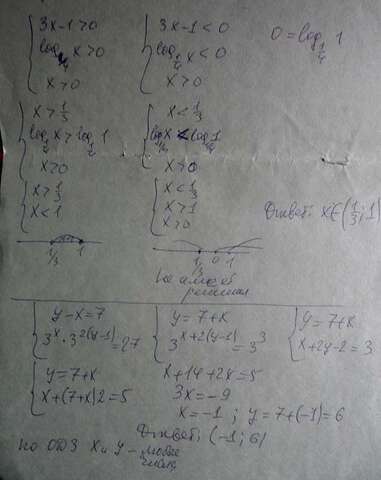 3x-1>0
log_{1/4} x>0
x>0
3x-1<0
log_{1/4} x<0
x>0
0=log_{1/4} 1
x>1/3
log_{1/2} x>log_{1/2} 1
x>0
x<1/3
log_{1/4} x<log_{1/4} 1
x>0
x>1/3
x<1
x<1/3
x>1
x>0
Ответ: x∈(1/3;1)
1/3 1
1/3 0 1
не имеет
решения
y-x=7
3^x·3^{2(y-1)}=27
y=7+x
3^{x+2(y-1)}=3^3
y=7+x
x+2y-2=3
y=7+x
x+(7+x)2=5
x+14+2x=5
3x=-9
x=-1; y=7+(-1)=6
Ответ: (-1;6)
по ОДЗ x и y - любые
числа